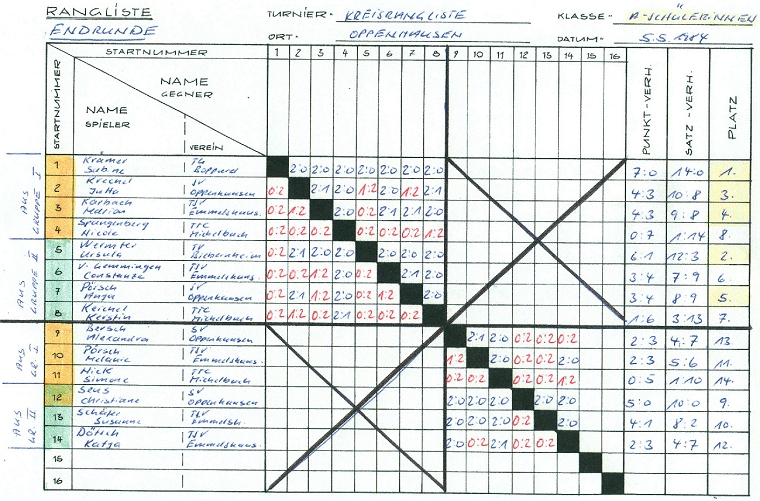 RANGLISTE TURNIER- KREISRANGLISTE KLASSE- A-SCHÜLERINNEN
ENDRUNDE ORT- OPPENHAUSEN DATUM- 5.5.1984
STARTNUMMER 1 2 3 4 5 6 7 8 9 10 11 12 13 14 15 16
STARTNUMMER NAME GEGNER NAME SPIELER VEREIN PUNKT-VERH. SATZ-VERH. PLATZ
AUS GRUPPE I
1 Krämer Sabine TG Boppard 2:0 2:0 2:0 2:0 2:0 2:0 2:0 7:0 14:0 1.
2 Krechel Jutta SV Oppenhausen 0:2 2:1 2:0 1:2 2:0 1:2 2:1 4:3 10:8 3.
3 Karbach Marion TSV Emmelshaus. 0:2 1:2 2:0 0:2 2:1 2:1 2:0 4:3 9:8 4.
4 Spangenberg Nicole TTC Michelbach 0:2 0:2 0:2 0:2 0:2 0:2 1:2 0:7 1:14 8.
AUS GRUPPE II
5 Wermter Ursula TV Biebernheim 0:2 2:1 2:0 2:0 2:0 2:0 2:0 6:1 12:3 2.
6 v. Gemmingen Constanze TSV Emmelshaus. 0:2 0:2 1:2 2:0 0:2 2:1 2:0 3:4 7:9 6.
7 Pörsch Anja SV Oppenhausen 0:2 2:1 1:2 2:0 0:2 1:2 2:0 3:4 8:9 5.
8 Reichel Kerstin TTC Michelbach 0:2 1:2 0:2 2:1 0:2 0:2 0:2 1:6 3:13 7.
AUS GR. I
9 Bersch Alexandra SV Oppenhausen 2:1 2:0 0:2 0:2 0:2 2:3 4:7 13
10 Pörsch Melanie TSV Emmelshaus. 1:2 2:0 0:2 0:2 2:0 2:3 5:6 11.
11 Nick Simone TTC Michelbach 0:2 0:2 0:2 0:2 1:2 0:5 1:10 14.
AUS GR. II
12 Seus Christiane SV Oppenhausen 2:0 2:0 2:0 2:0 2:0 5:0 10:0 9.
13 Schäfer Susanne TSV Emmelsh. 2:0 2:0 2:0 0:2 2:0 4:1 8:2 10.
14 Dötsch Katja TSV Emmelshaus. 2:0 0:2 2:1 0:2 0:2 2:3 4:7 12.
15
16